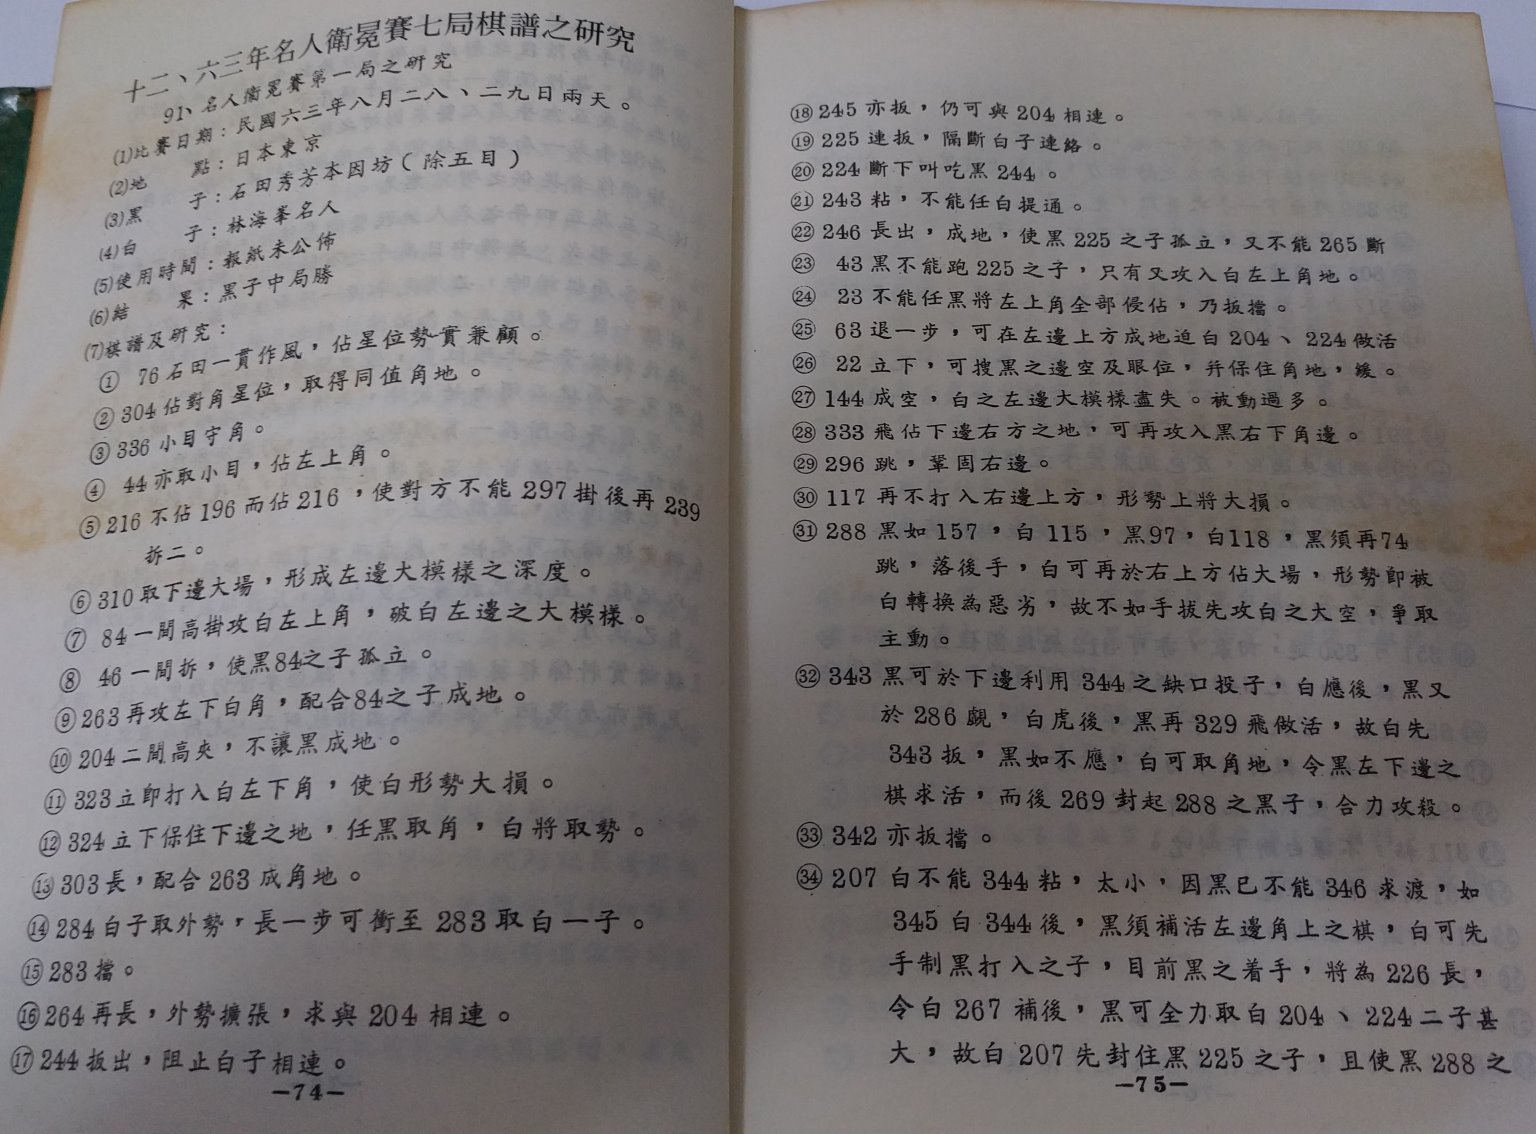 十二、六三年名人衛冕賽七局棋譜之研究
91、名人衛冕賽第一局之研究
⑴比賽日期：民國六三年八月二八、二九日兩天。
⑵地　　點：日本東京
⑶黑　　子：石田秀芳本因坊（除五目）
⑷白　　子：林海峯名人
⑸使用時間：報紙未公佈
⑹結　　果：黑子中局勝
⑺棋譜及研究：
① 76石田一貫作風，佔星位勢實兼顧。
②304佔對角星位，取得同值角地。
③336小目守角。
④ 44亦取小目，佔左上角。
⑤216不佔196而佔216，使對方不能297掛後再239
拆二。
⑥310取下邊大場，形成左邊大模樣之深度。
⑦ 84一間高掛攻白左上角，破白左邊之大模樣。
⑧ 46一間拆，使黑84之子孤立。
⑨263再攻左下白角，配合84之子成地。
⑩204二間高夾，不讓黑成地。
⑪323立即打入白左下角，使白形勢大損。
⑫324立下保住下邊之地，任黑取角，白將取勢。
⑬303長，配合263成角地。
⑭284白子取外勢，長一步可衝至283取白一子。
⑮283擋。
⑯264再長，外勢擴張，求與204相連。
⑰244扳出，阻止白子相連。
－74－
⑱245亦扳，仍可與204相連。
⑲225連扳，隔斷白子連絡。
⑳224斷下叫吃黑244。
㉑243粘，不能任白提通。
㉒246長出，成地，使黑225之子孤立，又不能265斷
㉓ 43黑不能跑225之子，只有又攻入白左上角地。
㉔ 23不能任黑將左上角全部侵佔，乃扳擋。
㉕ 63退一步，可在左邊上方成地迫白204、224做活
㉖ 22立下，可搜黑之邊空及眼位，并保住角地，緩。
㉗144成空，白之左邊大模樣盡失。被動過多。
㉘333飛佔下邊右方之地，可再攻入黑右下角邊。
㉙296跳，鞏固右邊。
㉚117再不打入右邊上方，形勢上將大損。
㉛288黑如157，白115，黑97，白118，黑須再74
跳，落後手，白可再於右上方佔大場，形勢即被
白轉換為惡劣，故不如手拔先攻白之大空，爭取
主動。
㉜343黑可於下邊利用344之缺口投子，白應後，黑又
於286覷，白虎後，黑再329飛做活，故白先
343扳，黑如不應，白可取角地，令黑左下邊之
棋求活，而後269封起288之黑子，合力攻殺。
㉝342亦扳擋。
㉞207白不能344粘，太小，因黑已不能346求渡，如
345白344後，黑須補活左邊角上之棋，白可先
手制黑打入之子，目前黑之着手，將為226長，
令白267補後，黑可全力取白204、224二子甚
大，故白207先封住黑225之子，且使黑288之
－75－